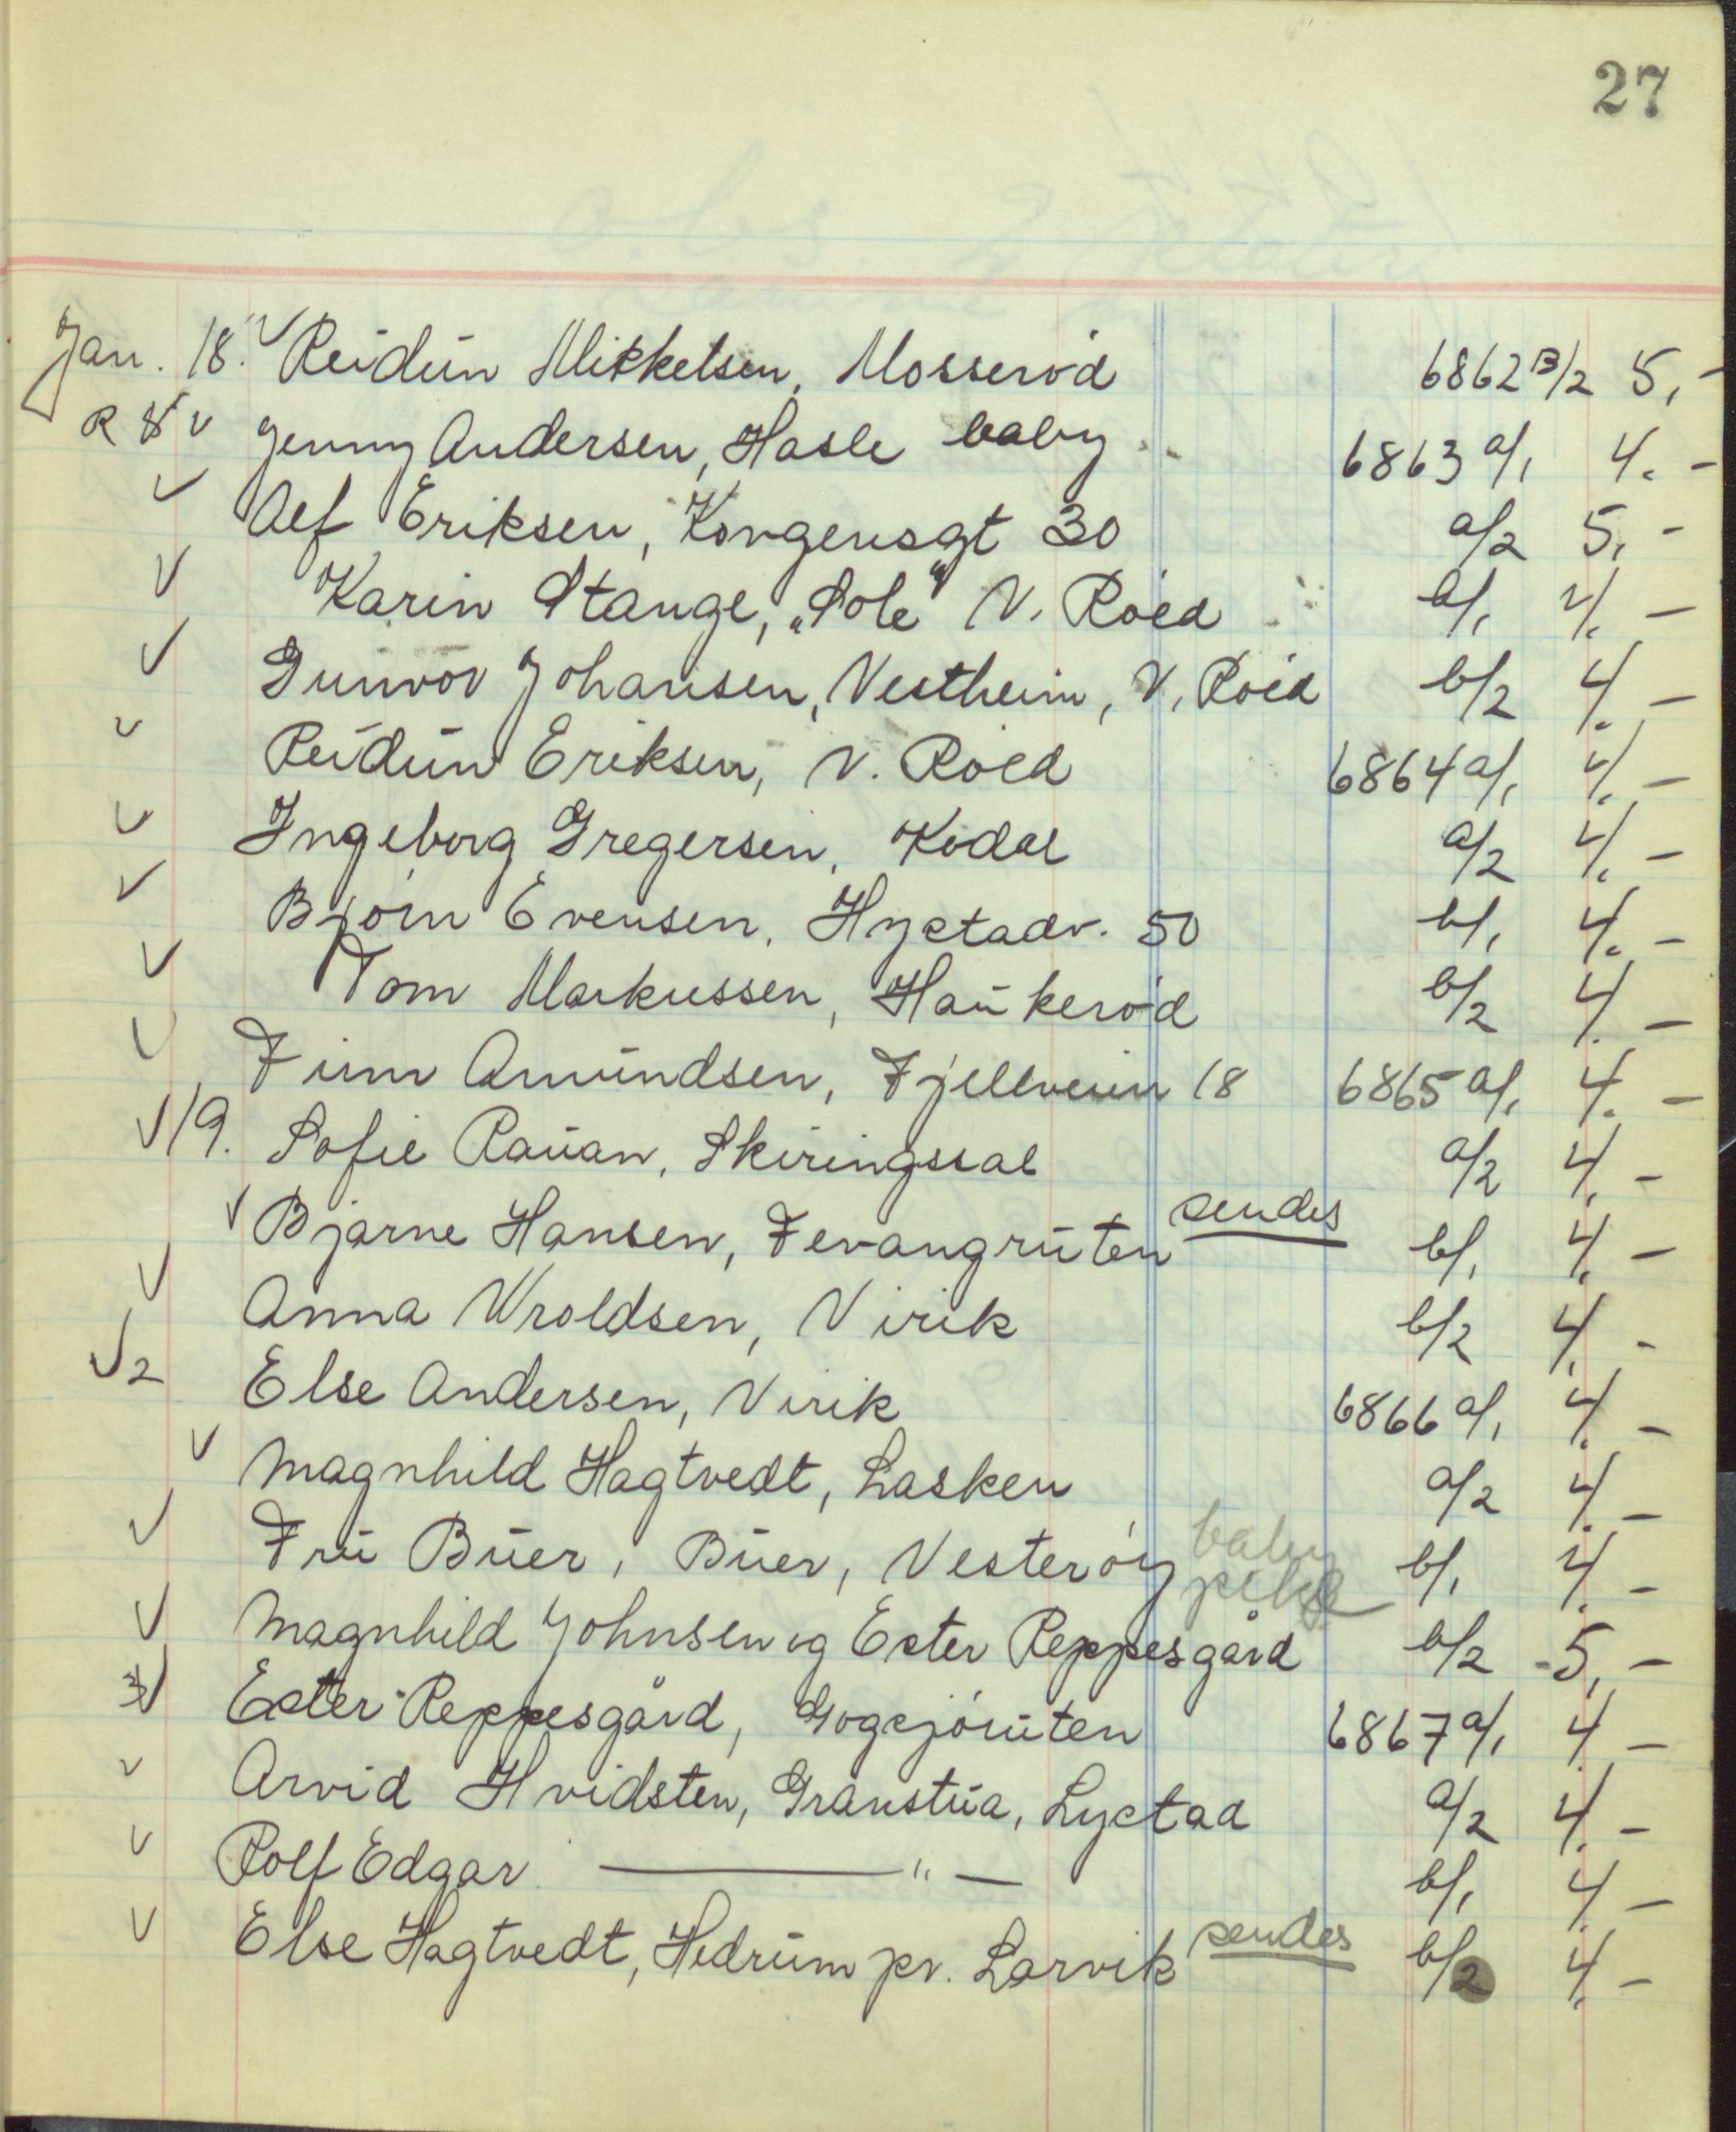 27
Jan. 18. √ Reidun Mikkelsen, Mosserød 6862 B/2 5,-
R 8 √ Jenny Andersen, Hasle baby 6863 a/1 4.-
√ Alf Eriksen, Kongensgt 30 a/2 5,-
√ Karin Stange, „Sole" V. Røed b/1 4.-
√ Gunvor Johansen, Vestheim, V. Røed b/2 4.-
√ Reidun Eriksen, V. Røed 6864 a/1 4.-
√ Ingeborg Gregersen, Kodal a/2 4.-
√ Bjørn Evensen, Hystadv. 50 b/1 4.-
√ Tom Markussen, Haukerød b/2 4.-
√ Finn Amundsen, Fjellveien 18 6865 a/1 4.-
√ 19. Sofie Rauan, Skiringssal a/2 4,-
√ Bjarne Hansen, Fevangruten sendes b/1 4,-
√ Anna Wroldsen, Virik b/2 4,-
√2 Else Andersen, Virik 6866 a/1 4.-
√ Magnhild Hagtvedt, Lasken a/2 4.-
√ Fru Buer, Buer, Vesterøy baby b/1 4.-
√ Magnhild Johnsen og Ester Reppesgård b/2 5,-
√ Ester Reppesgård, Gogsjøruten 6867 a/1 4.-
√ Arvid Hvidsten, Granstua, Lystad a/2 4.-
√ Rolf Edgar — " — b/1 4.-
√ Else Hagtvedt, Hedrum pr. Larvik sendes b/2 4.-